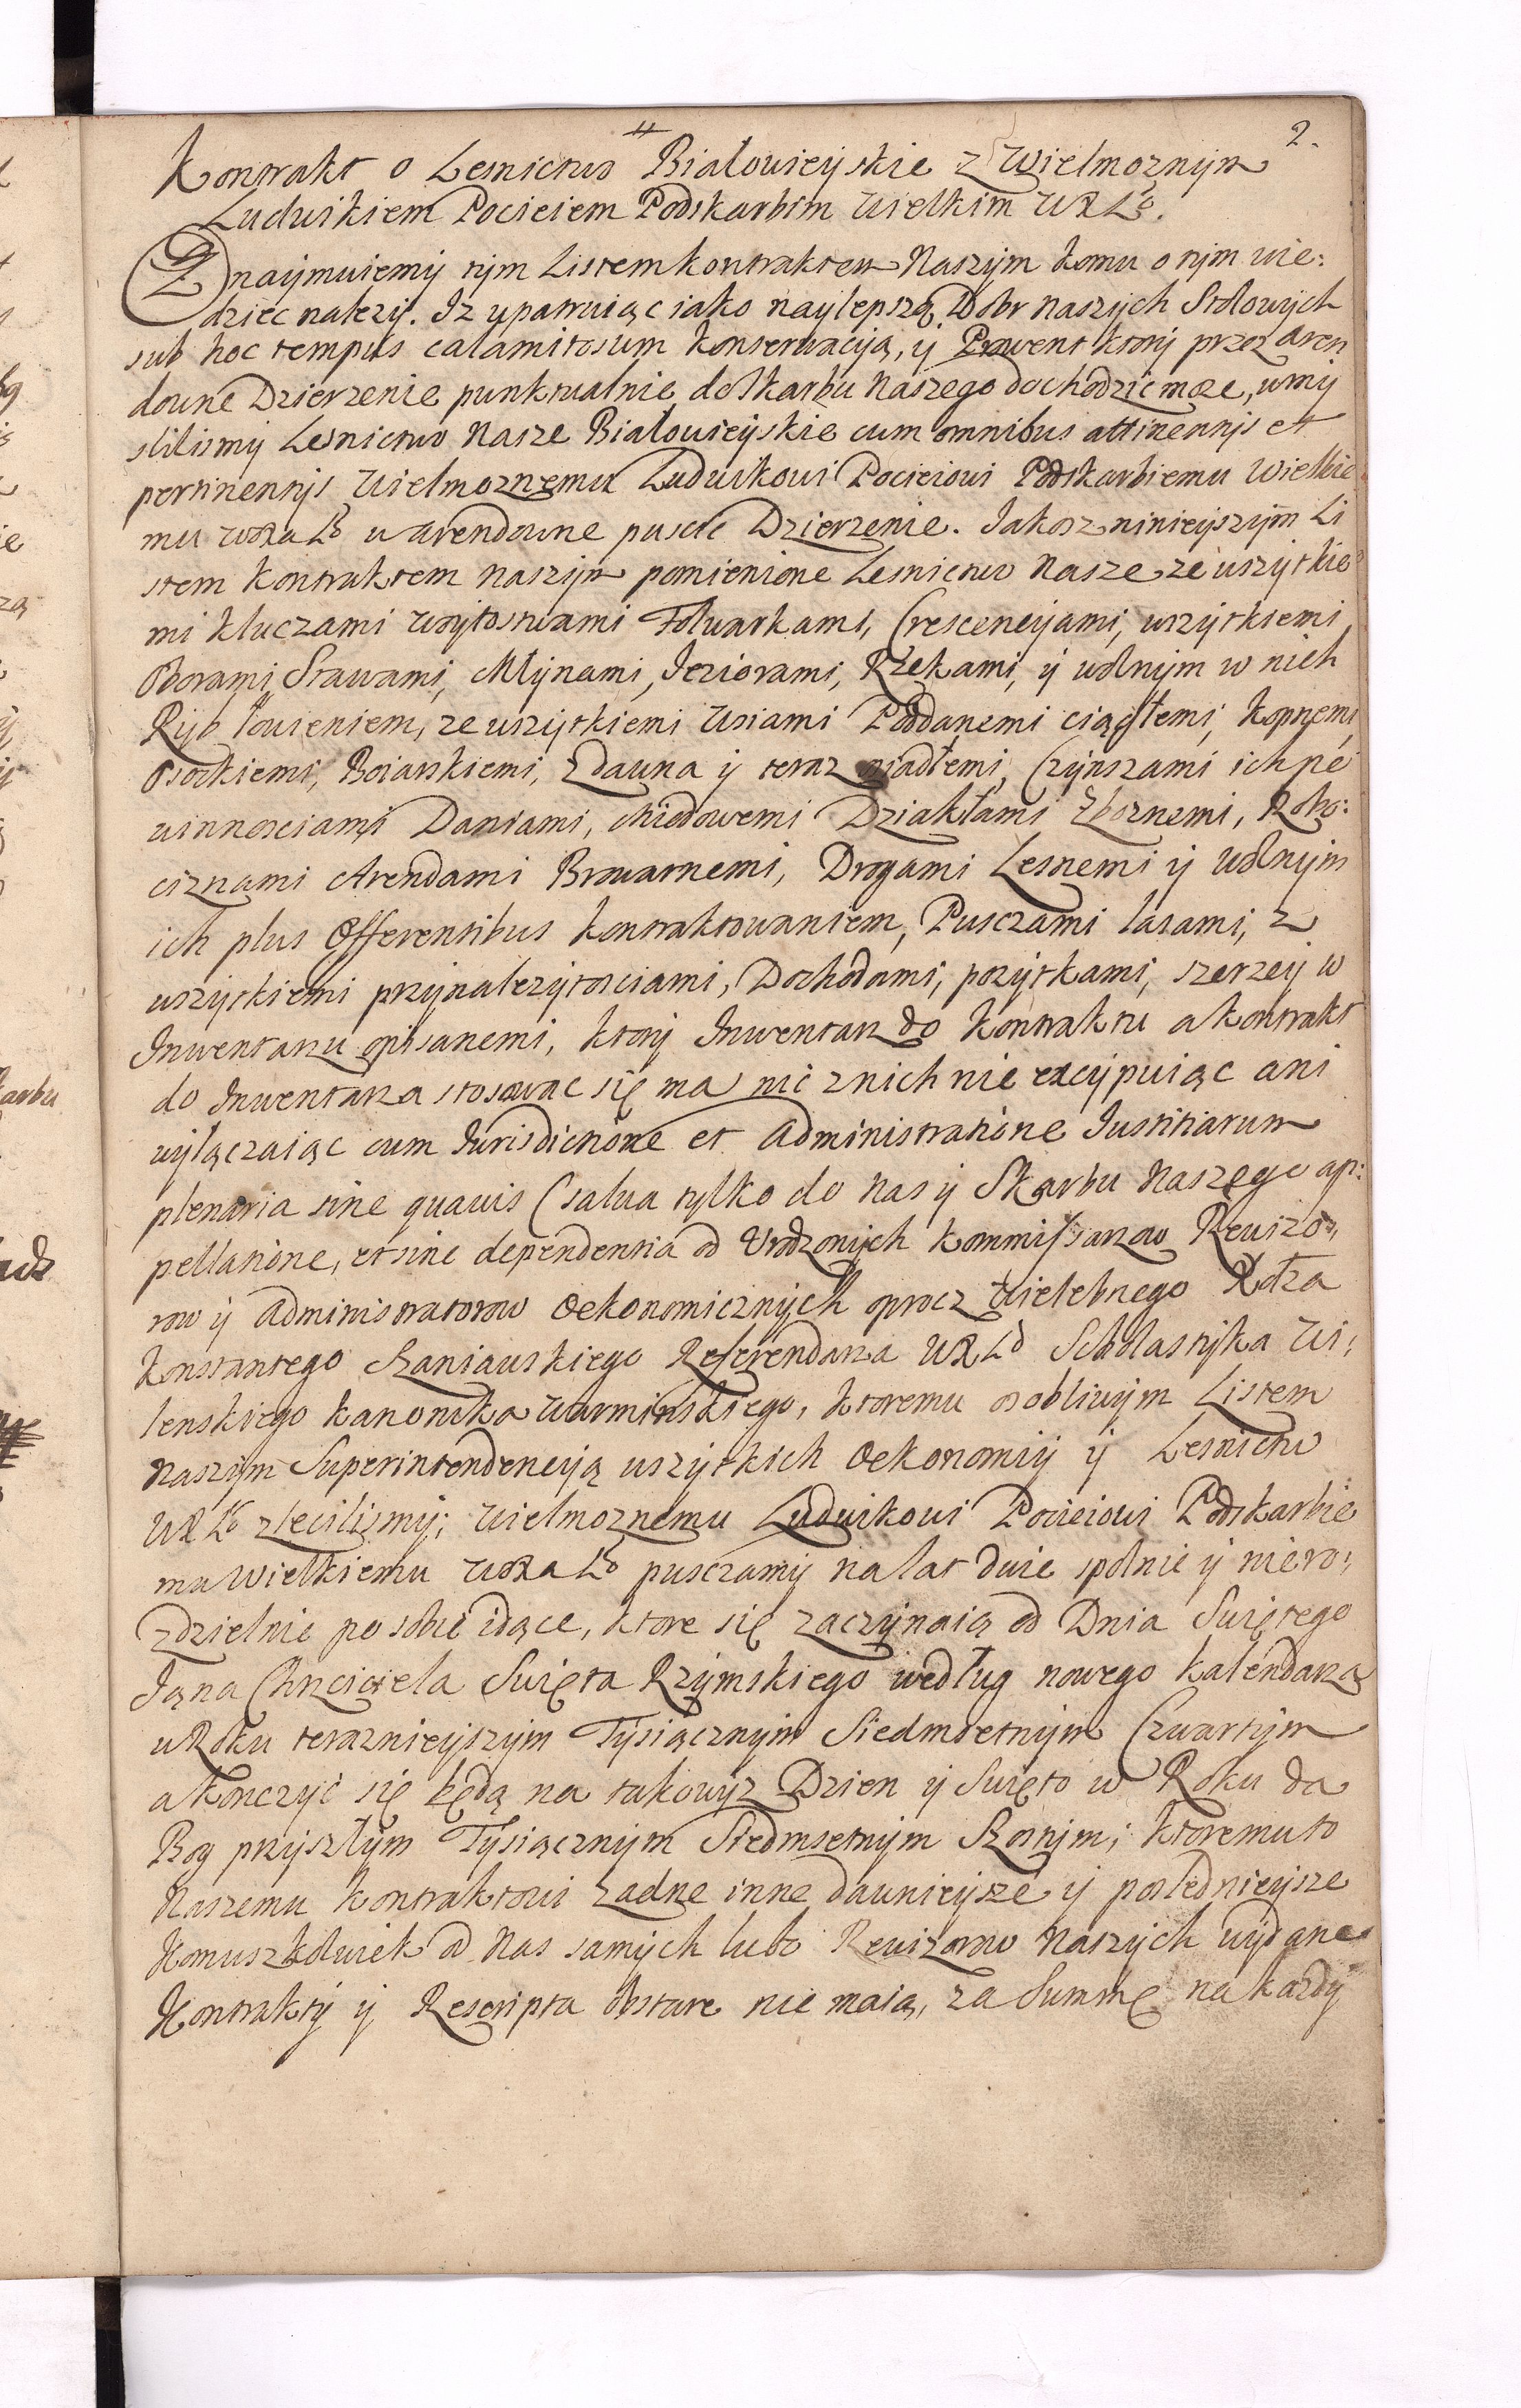 2.
Kontrakt o Lesnictwo Białowieyskie z Wielmoznym
Ludwikiem Pocieiem Podskarbim Wielkim WXLo.
Oznaymuiemy tym Listem kontraktem Naszym komu o tym wie:
dziec nalezy. Iz upatruiąc iako naylepszą Dobr Naszych Stołowych
sub hoc tempus calamitosum konserwacyią, y Prowent ktory przez Aren
downe Dzierzenie punktualnie do Skarbu Naszego dochodzic moze, umy
slilismy Lesnictwo Nasze Białowieyskie cum omnibus attinentijs et
pertinentijs Wielmoznemu Ludwikowi Pocieiowi Podskarbiemu Wielkie
mu WoXa Lo w arendowne puscic Dzierzenie. Jakosz ninieyszym Li
stem kontraktem naszym pomienione Lesnictwo Nasze ze wszytkie
mi kluczami woytostwami Folwarkami, Crescencyiami, wszytkiemi
Oborami, Stawami, Młynami, Jeziorami, Rzekami, y wolnym w nich
Ryb łowieniem, ze wszytkiemi Wsiami Poddanemi ciągłemi, kopnemi,
Osockiemi, Boiarskiemi, Zdawna y teraz osiadłemi, Czynszami ich po
winnosciami Daniami, Miodowemi Dziakłami Zbornemi, Robo:
ciznami Arendami Browarnemi, Drogami Lesnemi y wolnym
ich plus Offerentibus kontraktowaniem, Pusczami lasami, z
wszytkiemi przynalezytosciami, Dochodami, pozytkami, szerzey w
Inwentarzu opisanemi, ktory Inwentarz do kontraktu a kontrakt
do Inwentarza stosowac się ma nic z nich nie excypuiąc ani
wyłączaiąc cum Jurisdictione et Administratione Justitiarum
plenaria sine quavis (salva tylko do nas y Skarbu Naszego ap:
pellatione, et sine dependentia od Urodzonych kommissarzow Rewizo:
row y Administratorow Oekonomicznych oprocz Wielebnego Xdza
Konstantego Szaniawskiego Referendarza WXLo Scholastyka Wi:
lenskiego kanonika Warminskiego, ktoremu osobliwym Listem
Naszym Superintendencyią wszytkich Oekonomiy y Lesnictw
WXLo zlecilismy; Wielmoznemu Ludwikowi Pocieiowi Podskarbie
mu Wielkiemu WoXa Lo pusczamy na lat dwie spolnie y niero:
zdzielnie po sobie idące, ktore się zaczynaią od Dnia Swiętego
Jana Chrzciciela Swięta Rzymskiego według nowego kalendarza
w Roku teraznieyszym Tysiącznym Siedmsetnym Czwartym
a konczyc się będą na takowyz Dzien y Swięto w Roku da
Bog przyszłym Tysiącznym Siedmsetnym Szostym; ktoremu to
Naszemu kontraktowi zadne inne dawnieysze y poslednieysze
komuszkolwiek od Nas samych lubo Rewizorow Naszych wydane
Kontrakty y Rescripta obstare nie maią, za Summę na kazdy